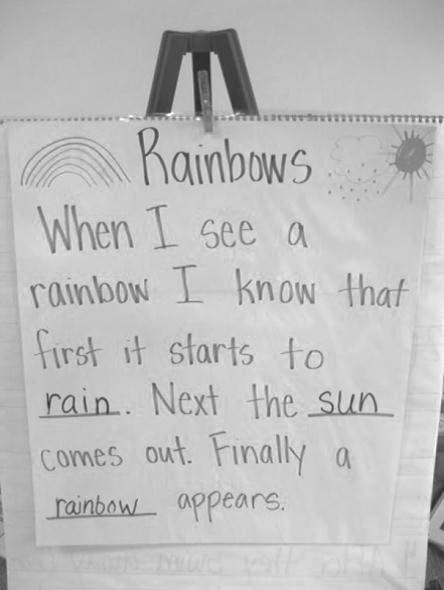 Rainbows
When I see a
rainbow I know that
first it starts to
rain. Next the sun
comes out. Finally a
rainbow appears.